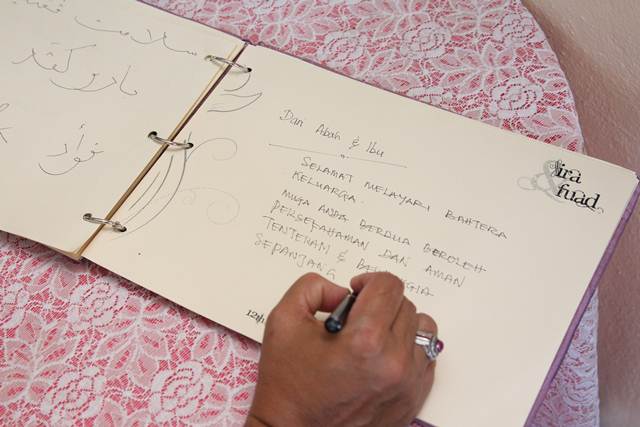 سلامت
فؤاد
Dari Abah & Ibu
SELAMAT MELAYARI BAHTERA
KELUARGA.
MUGA ANDA BERDUA BEROLEH
PERSEFAHAMAN DAN AMAN
TENTERAM &
SEPANJANG
&ira
fuad